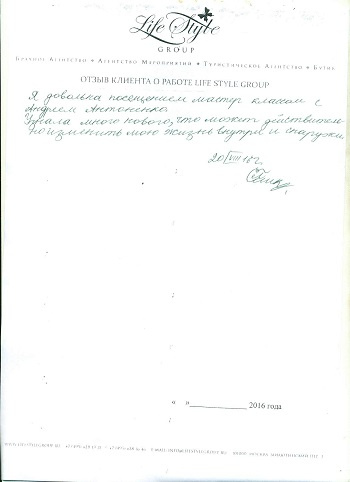 Life Style
GROUP
Брачное Агентство ♦ Агентство Мероприятий ♦ Туристическое Агентство ♦ Бутик
ОТЗЫВ КЛИЕНТА О РАБОТЕ LIFE STYLE GROUP
Я довольна посещением мастер классом с
Андреем Антоненко.
Узнала много нового, что может действитель-
но изменить мою жизнь внутри и снаружи.
20/VIII 16 г.
« »______________ 2016 года